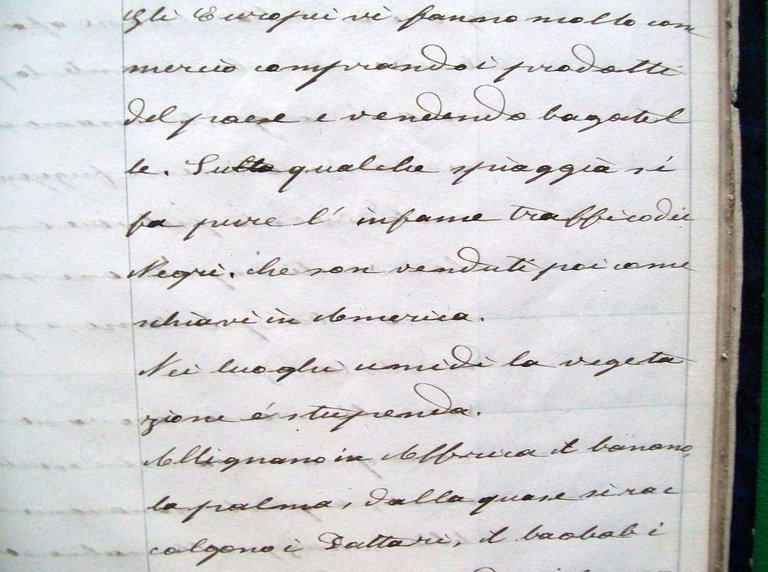 Gli Europei vi fanno molto com
mercio comprando i prodotti
del paese e vendendo bagatel
le. Sulla qualche spiaggia si
fa pure l' infame traffico dei
Negri. che son venduti poi come
schiavi in America.
Nei luoghi umidi la vegeta
zione é stupenda.
Allignano in Affrica il banano,
la palma, dalla quale si rac
colgono i Dattari, il baobab i